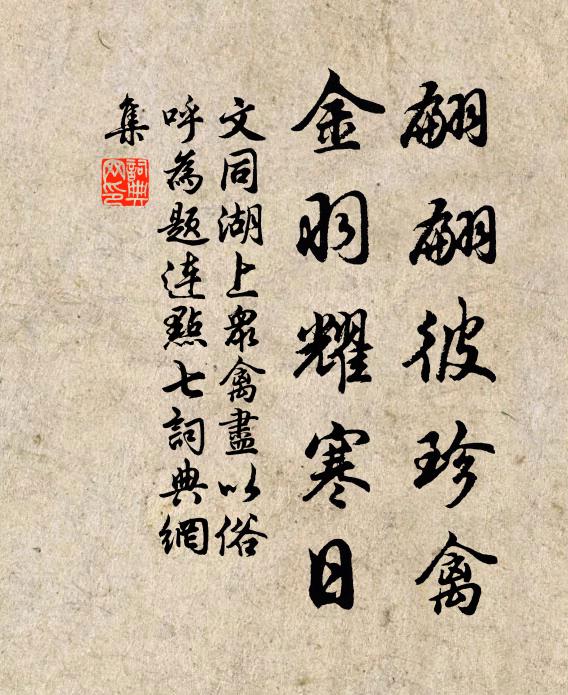 翩翩彼珍禽
金羽耀寒日
文同湖上眾禽盡以俗
呼為題連點七詞典網
集
詞典網印